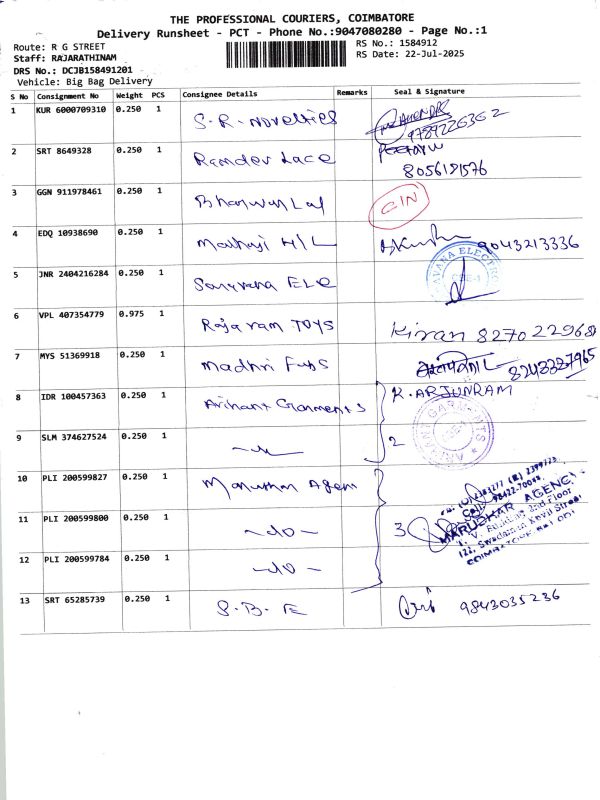 THE PROFESSIONAL COURIERS, COIMBATORE
Delivery Runsheet - PCT - Phone No.:9047080280 - Page No.:1
Route: R G STREET
RS No.: 1584912
Staff: RAJARATHINAM
RS Date: 22-Jul-2025
DRS No.: DCJB158491201
Vehicle: Big Bag Delivery
S No Consignment No Weight PCS Consignee Details Remarks Seal & Signature
1 KUR 6000709310 0.250 1 S.R. Novelties 9789226362
2 SRT 8649328 0.250 1 Ramdev Lace
8056191576
3 GGN 911978461 0.250 1 Bhanwar Lal
4 EDQ 10938690 0.250 1 H/L 9043213336
5 JNR 2404216284 0.250 1 Saravana Ele
6 VPL 407354779 0.975 1 Rajaram TOYS Kiran
7 MYS 51369918 0.250 1 Madhri Fabs
8 IDR 100457363 0.250 1 Arihant Garments K. ARJUNRAM
9 SLM 374627524 0.250 1 2
10 PLI 200599827 0.250 1 Agen
11 PLI 200599800 0.250 1 -do- 3 MARUDHAR AGENCY
12 PLI 200599784 0.250 1 -do-
13 SRT 65285739 0.250 1 S.B. E 9843035236